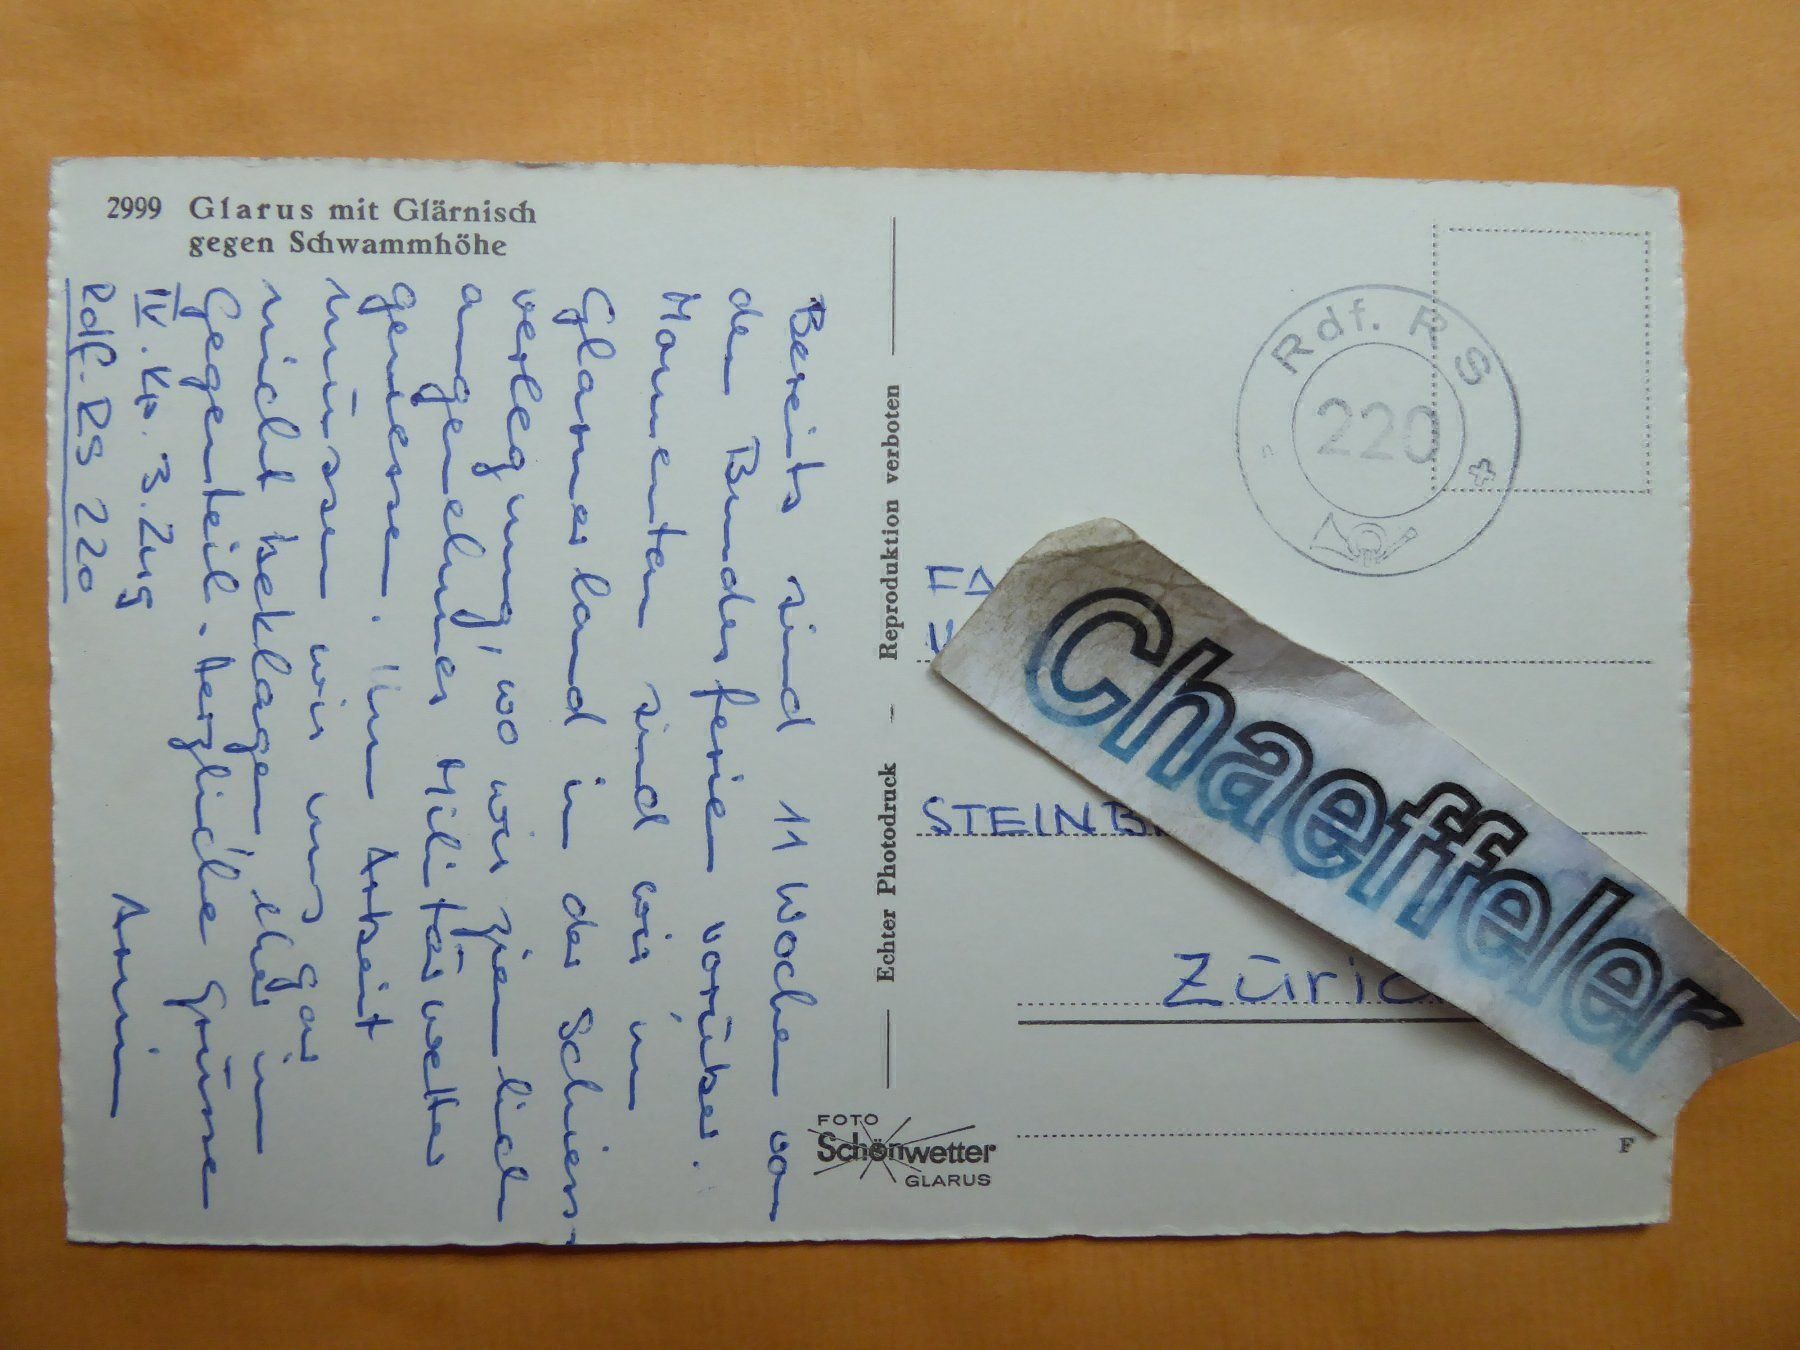 2999 Glarus mit Glärnisch
gegen Schwammhöhe
Bereits sind 11 Wochen von
den Bundesferien vorüber.
Momentan sind wir im
Glarnerland in der Schiess-
verlegung, wo wir ziemlich
angenehmes Militärwetter
geniessen. Um Arbeit
müssen wir uns gar
nicht beklagen, eher im
Gegenteil. Herzliche Grüsse
Armin
IV. Kp. 3. Zug
Rdf. RS 220
Echter Photodruck – Reproduktion verboten
FOTO
Schönwetter
GLARUS
Rdf. RS
220
STEINB
Züric
Chaeffeler
F